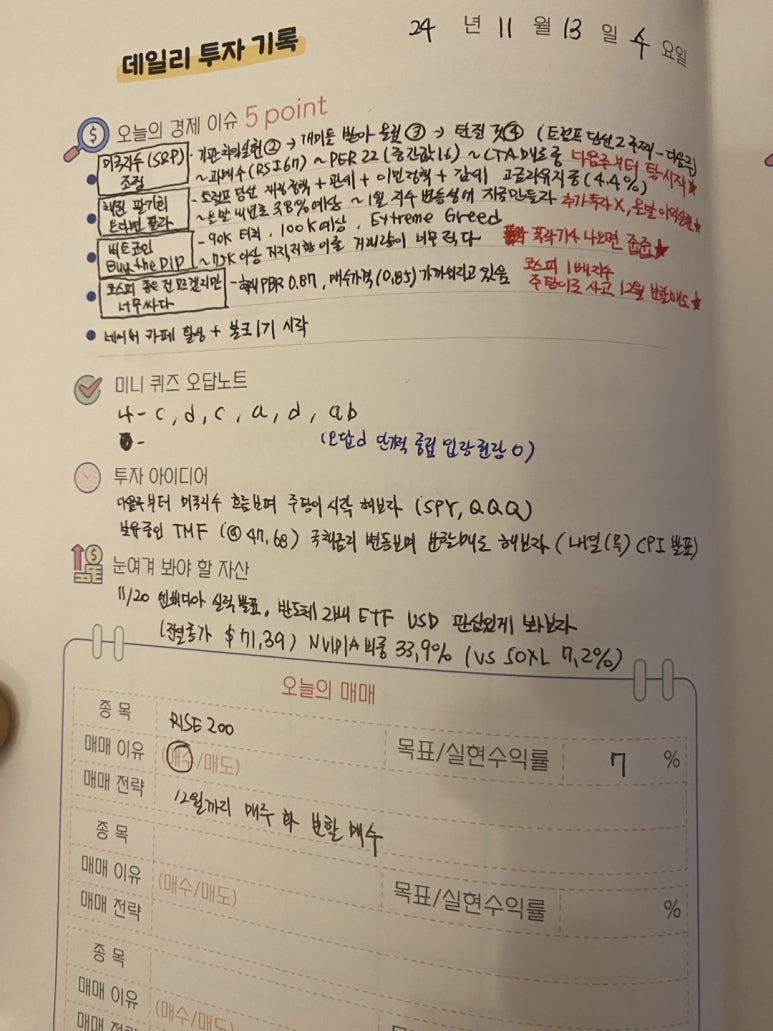 24 년 11 월 13 일 수 요일
데일리 투자 기록
오늘의 경제 이슈 5 point
미국지수 (S&P) 조정 - 기관 차익실현② → 개미들 받아 올림③ → 탄핵 것④ (트럼프 당선 2주째 - 다음주)
~ 과매수 (RSI 67) ~ PER 22 (중간값 16) ~ CTA 매도물 다음주부터 탐시작★
- 트럼프 당선 재정정책 + 관세 + 이민정책 + 감세 고금리유지중 (4.4%)
~ 연말 4.38% 예상 ~ 1월 지수 변동성에 추가투자 X, 온달 이익실현★
비트코인 Buy the DIP - 90K 터치, 100K 예상, Extreme Greed
~ 72K 이상 지지저항 이룰 거래량이 너무 적다 폭락기사 나오면 줍줍★
코스피 좋은건 모르겠지만 너무싸다 - 현 PBR 0.87, 매수가격 (0.85) 가까워지고 있음 코스피 1배지수
주담이로 사고 12월 분할매도★
네이버 카페 활성 + 블로그 1기 시작
미니 퀴즈 오답노트
4- c, d, c, a, d, ab
(오답 d 단기적 중립 입장 권장 O)
투자 아이디어
다음주부터 미국지수 흐름보며 주담이 시작 해보라 (SPY, QQQ)
보유중인 TMF (@ 47.68) 국채금리 변동보며 분할매도 해보라 (내일 (목) CPI 발표)
눈여겨 봐야 할 자산
11/20 엔비디아 실적발표. 반도체 2배 ETF USD 관심있게 봐보라
(전일종가 $71.39) NVIDIA 비중 33.9% (VS SOXL 7.2%)
오늘의 매매
종목 RISE 200
매매 이유 (매수/매도) 목표/실현수익률 7 %
매매 전략 12월까지 매주 화 분할 매수
종목
매매 이유 (매수/매도) 목표/실현수익률 %
매매 전략
종목
매매 이유 (매수/매도)
매매 전략